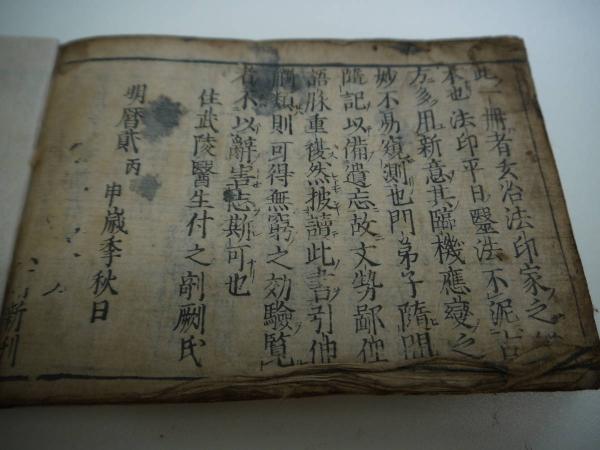 此一冊者玄冶法印家之
本也法印平日毉法不泥古
方多用新意其臨機應變之
妙不易窺測也門弟子隋聞
隨記以備遺忘故文勢鄙俚
語脉重復然披讀此書引伸
觸類則可得無窮之効驗覧
者不以辭害志斯可也
住武陵醫生付之剞劂氏
明暦貳丙申嵗季秋日
新刊